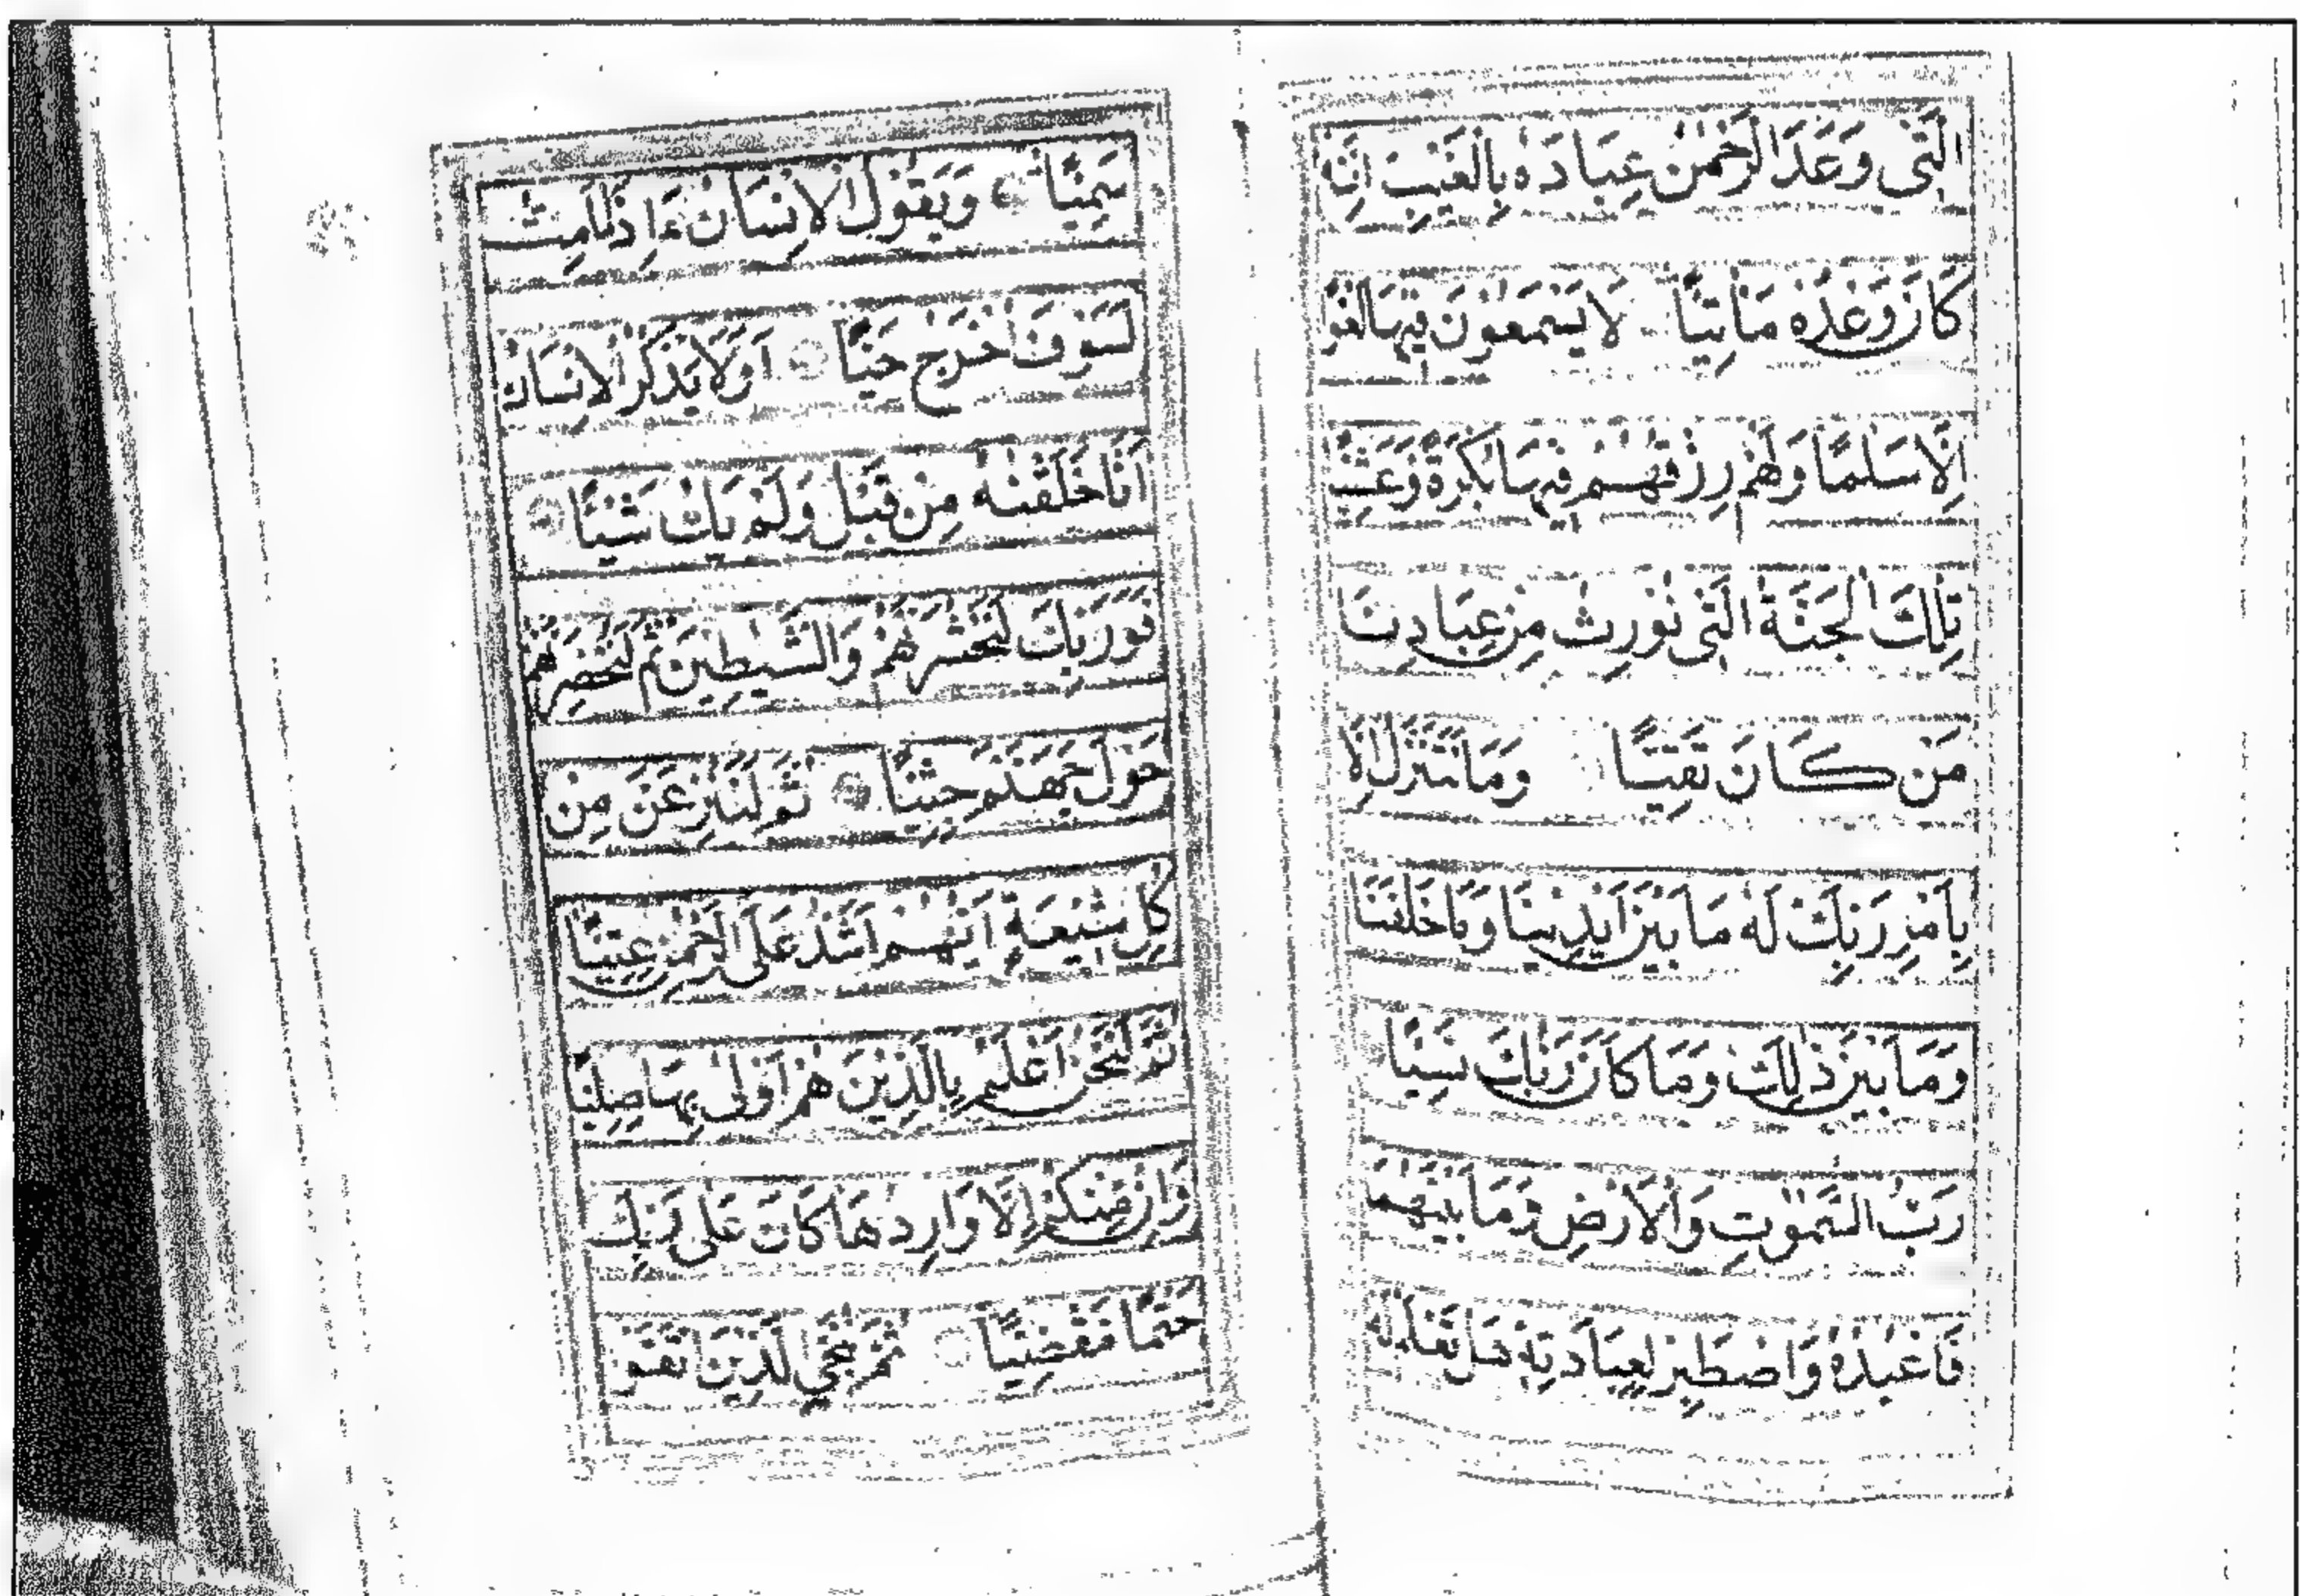 الَّتِى وَعَدَ الرَّحْمٰنُ عِبَادَهُ بِالْغَيْبِ اِنَّهُ
كَانَ وَعْدُهُ مَأْتِيًّا لَا يَسْمَعُونَ فِيهَا لَغْوًا
اِلَّا سَلٰمًا وَلَهُمْ رِزْقُهُمْ فِيهَا بُكْرَةً وَعَشِيًّا
تِلْكَ الْجَنَّةُ الَّتِى نُورِثُ مِنْ عِبَادِنَا
مَنْ كَانَ تَقِيًّا وَمَا نَتَنَزَّلُ اِلَّا
بِاَمْرِ رَبِّكَ لَهُ مَا بَيْنَ اَيْدِينَا وَمَا خَلْفَنَا
وَمَا بَيْنَ ذٰلِكَ وَمَا كَانَ رَبُّكَ نَسِيًّا
رَبُّ السَّمٰوٰتِ وَالْاَرْضِ وَمَا بَيْنَهُمَا
فَاعْبُدْهُ وَاصْطَبِرْ لِعِبَادَتِهِ هَلْ تَعْلَمُ لَهُ
سَمِيًّا وَيَقُولُ الْاِنْسَانُ ءَاِذَا مَا مِتُّ
لَسَوْفَ اُخْرَجُ حَيًّا اَوَلَا يَذْكُرُ الْاِنْسَانُ
اَنَّا خَلَقْنٰهُ مِنْ قَبْلُ وَلَمْ يَكُ شَيْئًا
فَوَرَبِّكَ لَنَحْشُرَنَّهُمْ وَالشَّيٰطِينَ ثُمَّ لَنُحْضِرَنَّهُمْ
حَوْلَ جَهَنَّمَ جِثِيًّا ثُمَّ لَنَنْزِعَنَّ مِنْ
كُلِّ شِيعَةٍ اَيُّهُمْ اَشَدُّ عَلَى الرَّحْمٰنِ عِتِيًّا
ثُمَّ لَنَحْنُ اَعْلَمُ بِالَّذِينَ هُمْ اَوْلٰى بِهَا صِلِيًّا
وَاِنْ مِنْكُمْ اِلَّا وَارِدُهَا كَانَ عَلٰى رَبِّكَ
حَتْمًا مَقْضِيًّا ثُمَّ نُنَجِّى الَّذِينَ اتَّقَوْا